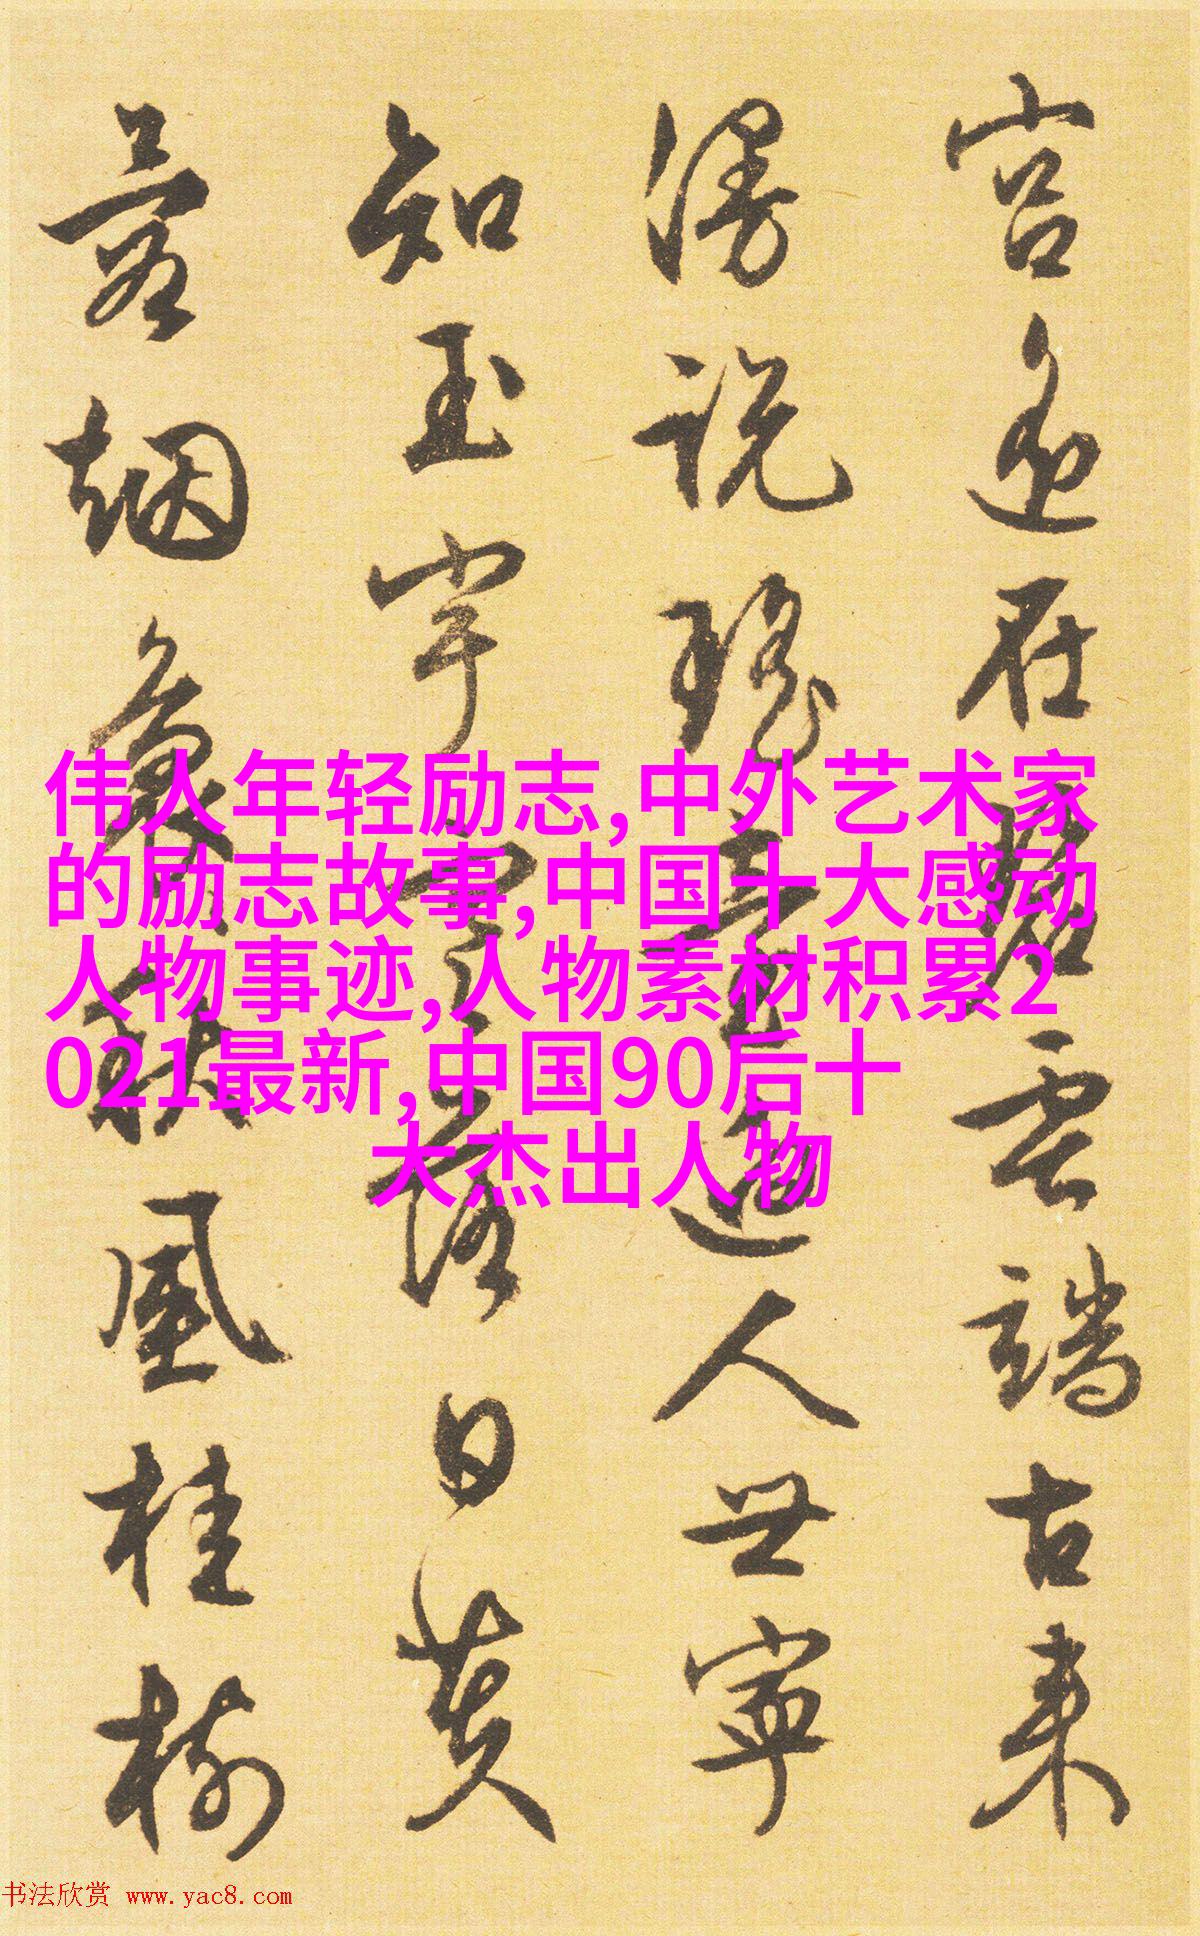 宮遙在碧雲端古来
漫說瑤臺人世寧
知玉宇落日黄
烟秋風桂樹
伟人年轻励志,中外艺术家
的励志故事,中国十大感动
人物事迹,人物素材积累2
021最新,中国90后十
大杰出人物
书法欣赏 www.yac8.com